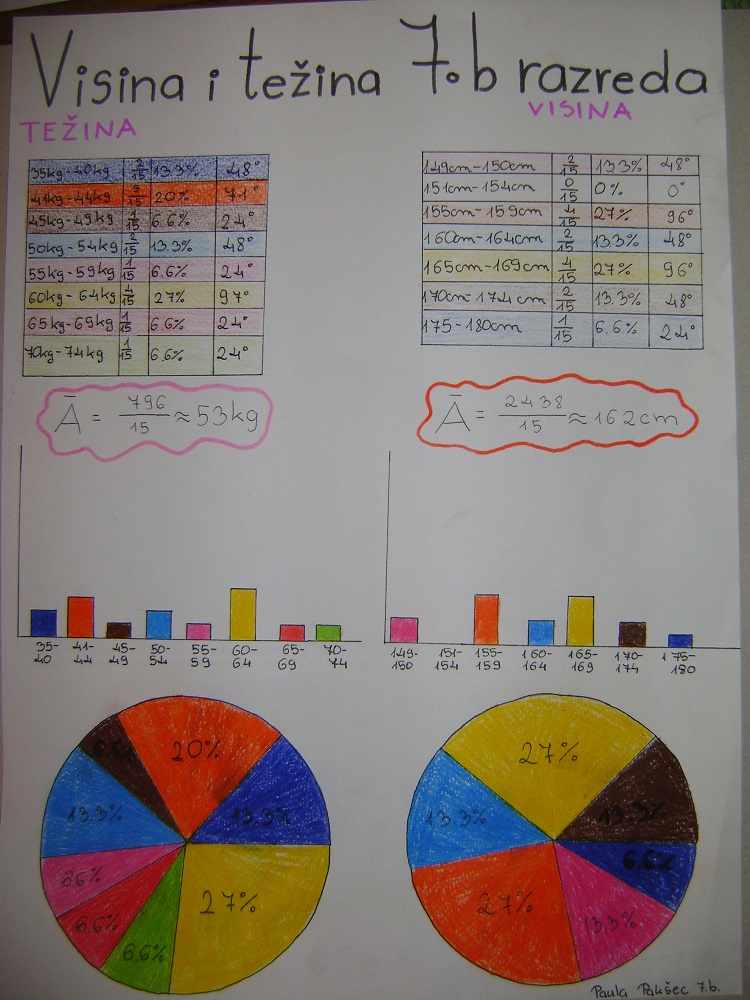 Visina i težina 7.b razreda
TEŽINA
35kg-40kg 2/15 13.3% 48°
41kg-44kg 3/15 20% 71°
45kg-49kg 1/15 6.6% 24°
50kg-54kg 2/15 13.3% 48°
55kg-59kg 1/15 6.6% 24°
60kg-64kg 4/15 27% 97°
65kg-69kg 1/15 6.6% 24°
70kg-74kg 1/15 6.6% 24°
Ā = 796/15 ≈ 53kg
VISINA
149cm-150cm 2/15 13.3% 48°
151cm-154cm 0/15 0% 0°
155cm-159cm 4/15 27% 96°
160cm-164cm 2/15 13.3% 48°
165cm-169cm 4/15 27% 96°
170cm-174cm 2/15 13.3% 48°
175-180cm 1/15 6.6% 24°
Ā = 2438/15 ≈ 162cm
35-40 41-44 45-49 50-54 55-59 60-64 65-69 70-74
149-150 151-154 155-159 160-164 165-169 170-174 175-180
20%
13.3%
27%
6.6%
6.6%
6.6%
13.3%
6.6%
27%
13.3%
6.6%
13.3%
27%
13.3%
Paula Pakšec 7.b.